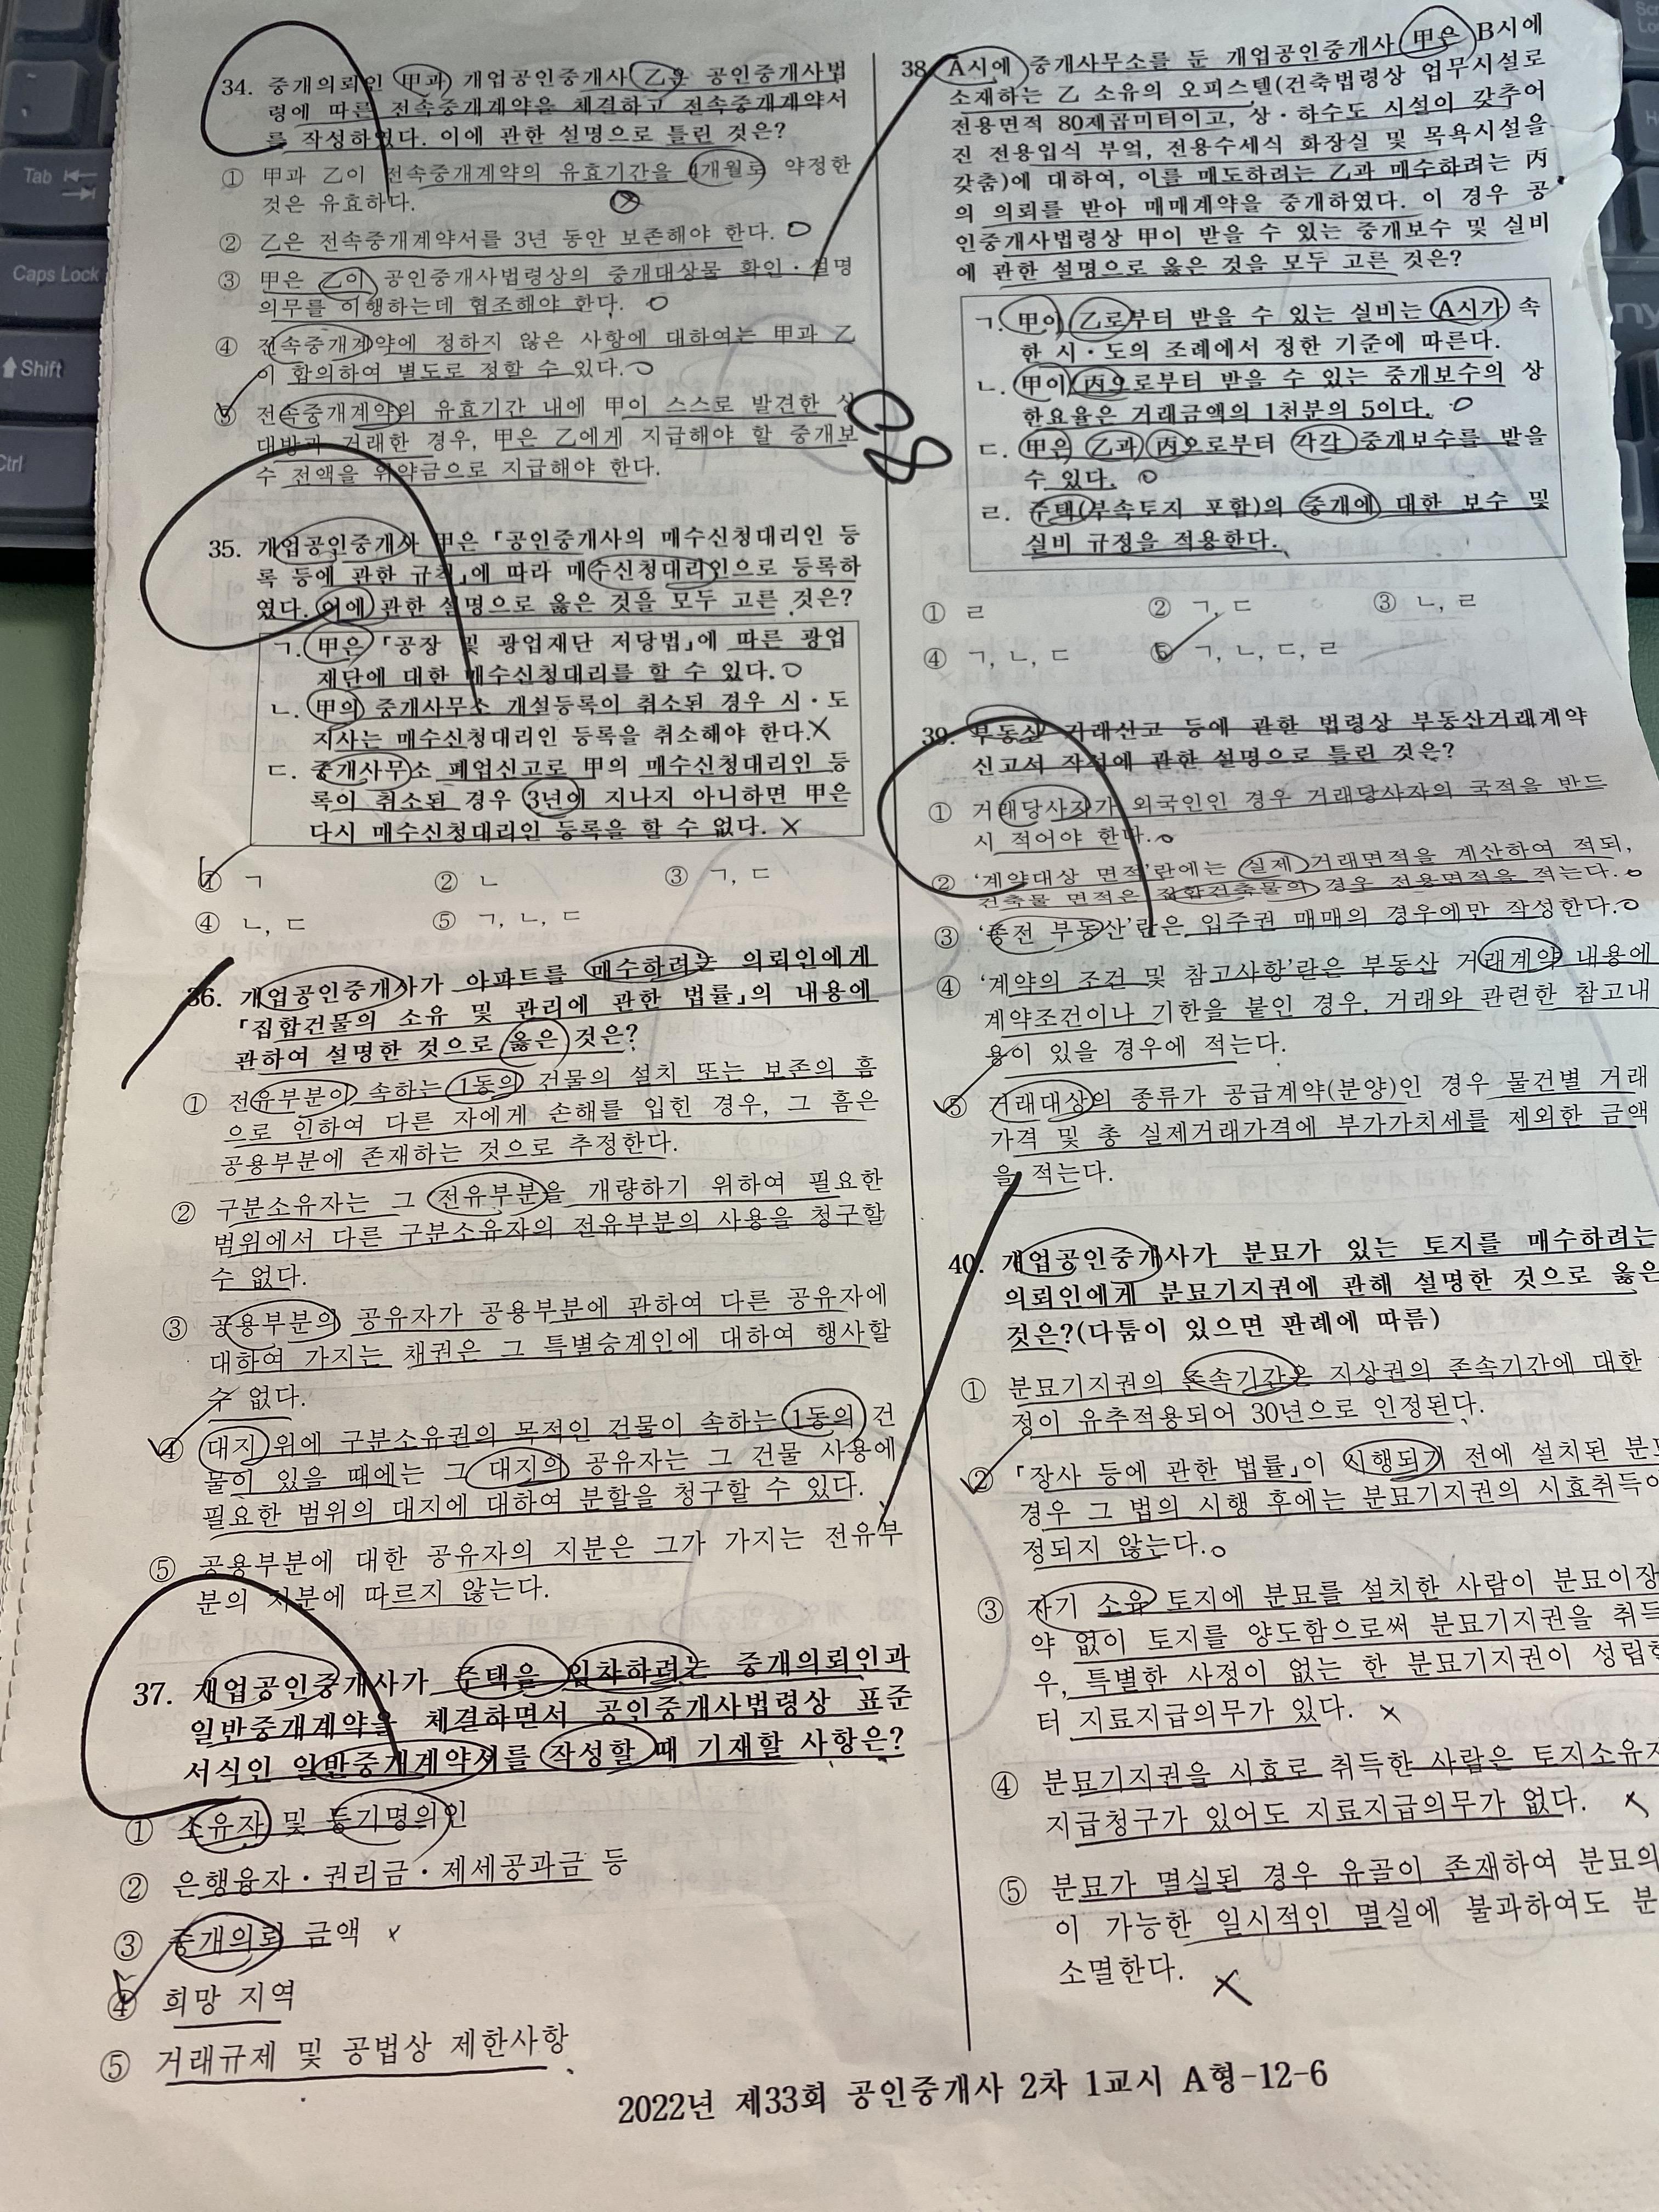 34. 중개의뢰인 甲과 개업공인중개사 乙은 공인중개사법
령에 따른 전속중개계약을 체결하고 전속중개계약서
를 작성하였다. 이에 관한 설명으로 틀린 것은?
① 甲과 乙이 전속중개계약의 유효기간을 4개월로 약정한
것은 유효하다.
② 乙은 전속중개계약서를 3년 동안 보존해야 한다.
③ 甲은 乙이 공인중개사법령상의 중개대상물 확인·설명
의무를 이행하는데 협조해야 한다.
④ 전속중개계약에 정하지 않은 사항에 대하여는 甲과 乙
이 합의하여 별도로 정할 수 있다.
⑤ 전속중개계약의 유효기간 내에 甲이 스스로 발견한 상
대방과 거래한 경우, 甲은 乙에게 지급해야 할 중개보
수 전액을 위약금으로 지급해야 한다.
35. 개업공인중개사 甲은 「공인중개사의 매수신청대리인 등
록 등에 관한 규칙」에 따라 매수신청대리인으로 등록하
였다. 이에 관한 설명으로 옳은 것을 모두 고른 것은?
ㄱ. 甲은 「공장 및 광업재단 저당법」에 따른 광업
재단에 대한 매수신청대리를 할 수 있다.
ㄴ. 甲의 중개사무소 개설등록이 취소된 경우 시·도
지사는 매수신청대리인 등록을 취소해야 한다.
ㄷ. 중개사무소 폐업신고로 甲의 매수신청대리인 등
록이 취소된 경우 3년이 지나지 아니하면 甲은
다시 매수신청대리인 등록을 할 수 없다.
① ㄱ ② ㄴ ③ ㄱ, ㄷ
④ ㄴ, ㄷ ⑤ ㄱ, ㄴ, ㄷ
36. 개업공인중개사가 아파트를 매수하려는 의뢰인에게
「집합건물의 소유 및 관리에 관한 법률」의 내용에
관하여 설명한 것으로 옳은 것은?
① 전유부분이 속하는 1동의 건물의 설치 또는 보존의 흠
으로 인하여 다른 자에게 손해를 입힌 경우, 그 흠은
공용부분에 존재하는 것으로 추정한다.
② 구분소유자는 그 전유부분을 개량하기 위하여 필요한
범위에서 다른 구분소유자의 전유부분의 사용을 청구할
수 없다.
③ 공용부분의 공유자가 공용부분에 관하여 다른 공유자에
대하여 가지는 채권은 그 특별승계인에 대하여 행사할
수 없다.
④ 대지 위에 구분소유권의 목적인 건물이 속하는 1동의 건
물이 있을 때에는 그 대지의 공유자는 그 건물 사용에
필요한 범위의 대지에 대하여 분할을 청구할 수 있다.
⑤ 공용부분에 대한 공유자의 지분은 그가 가지는 전유부
분의 지분에 따르지 않는다.
37. 개업공인중개사가 주택을 임차하려는 중개의뢰인과
일반중개계약을 체결하면서 공인중개사법령상 표준
서식인 일반중개계약서를 작성할 때 기재할 사항은?
① 소유자 및 등기명의인
② 은행융자·권리금·제세공과금 등
③ 중개의뢰 금액
④ 희망 지역
⑤ 거래규제 및 공법상 제한사항
38. A시에 중개사무소를 둔 개업공인중개사 甲은 B시에
소재하는 乙 소유의 오피스텔(건축법령상 업무시설로
전용면적 80제곱미터이고, 상·하수도 시설이 갖추어
진 전용입식 부엌, 전용수세식 화장실 및 목욕시설을
갖춤)에 대하여, 이를 매도하려는 乙과 매수하려는 丙
의 의뢰를 받아 매매계약을 중개하였다. 이 경우 공
인중개사법령상 甲이 받을 수 있는 중개보수 및 실비
에 관한 설명으로 옳은 것을 모두 고른 것은?
ㄱ. 甲이 乙로부터 받을 수 있는 실비는 A시가 속
한 시·도의 조례에서 정한 기준에 따른다.
ㄴ. 甲이 丙으로부터 받을 수 있는 중개보수의 상
한요율은 거래금액의 1천분의 5이다.
ㄷ. 甲은 乙과 丙으로부터 각각 중개보수를 받을
수 있다.
ㄹ. 주택(부속토지 포함)의 중개에 대한 보수 및
실비 규정을 적용한다.
① ㄹ ② ㄱ, ㄷ ③ ㄴ, ㄹ
④ ㄱ, ㄴ, ㄷ ⑤ ㄱ, ㄴ, ㄷ, ㄹ
39. 부동산 거래신고 등에 관한 법령상 부동산거래계약
신고서 작성에 관한 설명으로 틀린 것은?
① 거래당사자가 외국인인 경우 거래당사자의 국적을 반드
시 적어야 한다.
② '계약대상 면적'란에는 실제 거래면적을 계산하여 적되,
건축물 면적은 집합건축물의 경우 전용면적을 적는다.
③ '종전 부동산'란은 입주권 매매의 경우에만 작성한다.
④ '계약의 조건 및 참고사항'란은 부동산 거래계약 내용에
계약조건이나 기한을 붙인 경우, 거래와 관련한 참고내
용이 있을 경우에 적는다.
⑤ 거래대상의 종류가 공급계약(분양)인 경우 물건별 거래
가격 및 총 실제거래가격에 부가가치세를 제외한 금액
을 적는다.
40. 개업공인중개사가 분묘가 있는 토지를 매수하려는
의뢰인에게 분묘기지권에 관해 설명한 것으로 옳은
것은?(다툼이 있으면 판례에 따름)
① 분묘기지권의 존속기간은 지상권의 존속기간에 대한
정이 유추적용되어 30년으로 인정된다.
② 「장사 등에 관한 법률」이 시행되기 전에 설치된 분묘
경우 그 법의 시행 후에는 분묘기지권의 시효취득이
정되지 않는다.
③ 자기 소유 토지에 분묘를 설치한 사람이 분묘이장
약 없이 토지를 양도함으로써 분묘기지권을 취득
우, 특별한 사정이 없는 한 분묘기지권이 성립한
터 지료지급의무가 있다.
④ 분묘기지권을 시효로 취득한 사람은 토지소유자
지급청구가 있어도 지료지급의무가 없다.
⑤ 분묘가 멸실된 경우 유골이 존재하여 분묘의
이 가능한 일시적인 멸실에 불과하여도 분
소멸한다.
2022년 제33회 공인중개사 2차 1교시 A형-12-6
Tab
Caps Lock
Shift
Ctrl